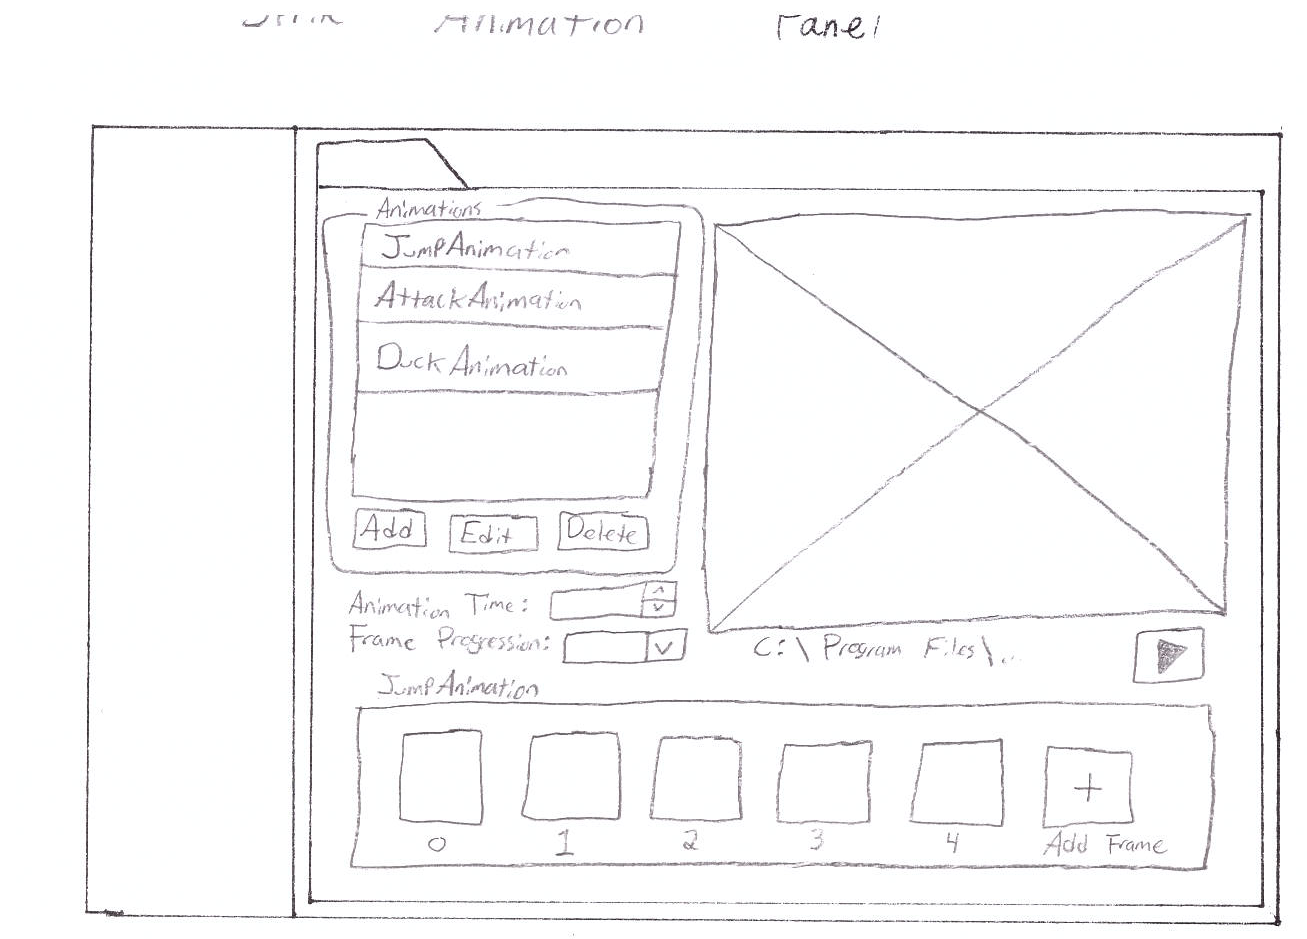 Animation Panel
Animations
JumpAnimation
AttackAnimation
DuckAnimation
Add Edit Delete
Animation Time:
Frame Progression:
C:\Program Files\...
JumpAnimation
0 1 2 3 4 Add Frame